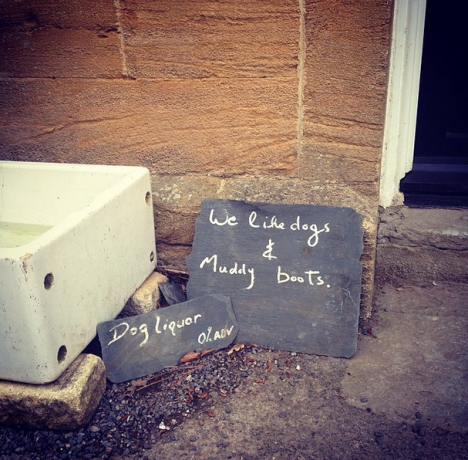 We like dogs
&
Muddy boots.
Dog liquor
0% ABV